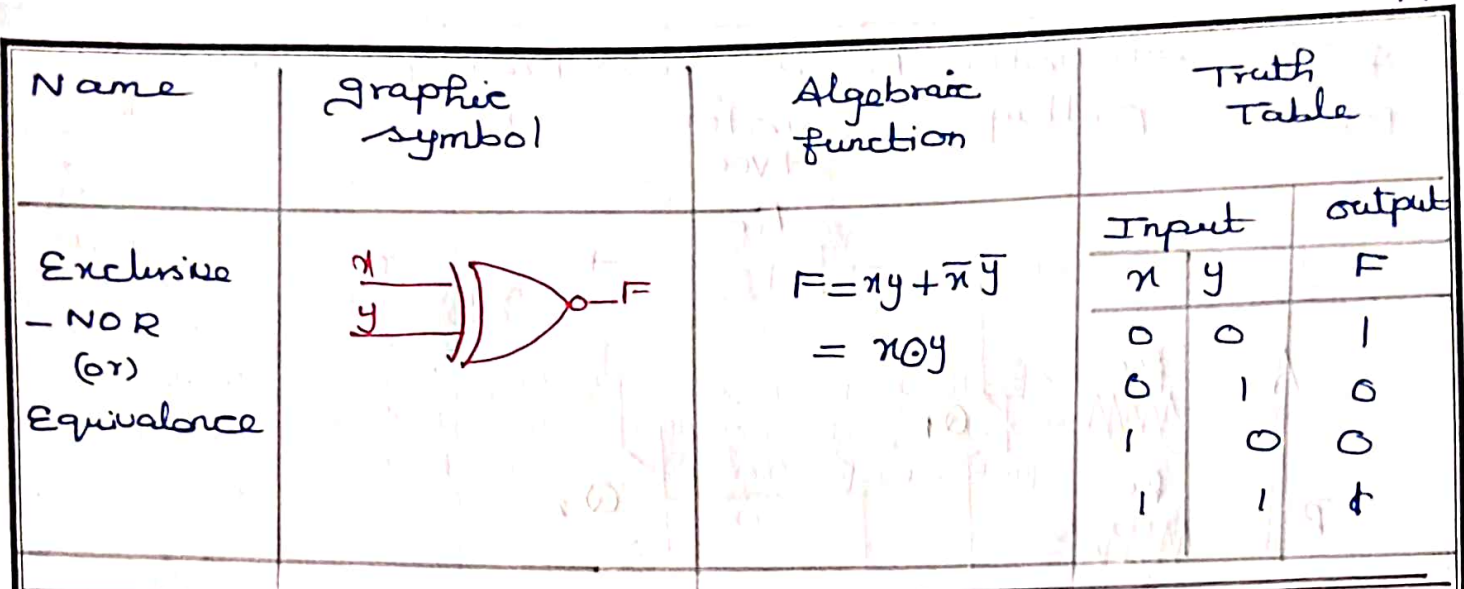 Name
graphic
symbol
Algebraic
function
Truth
Table
Exclusive
- NOR
(or)
Equivalence
x
y
F
F = xy + x̅ y̅
= x⊙y
Input output
x y F
0 0 1
0 1 0
1 0 0
1 1 1